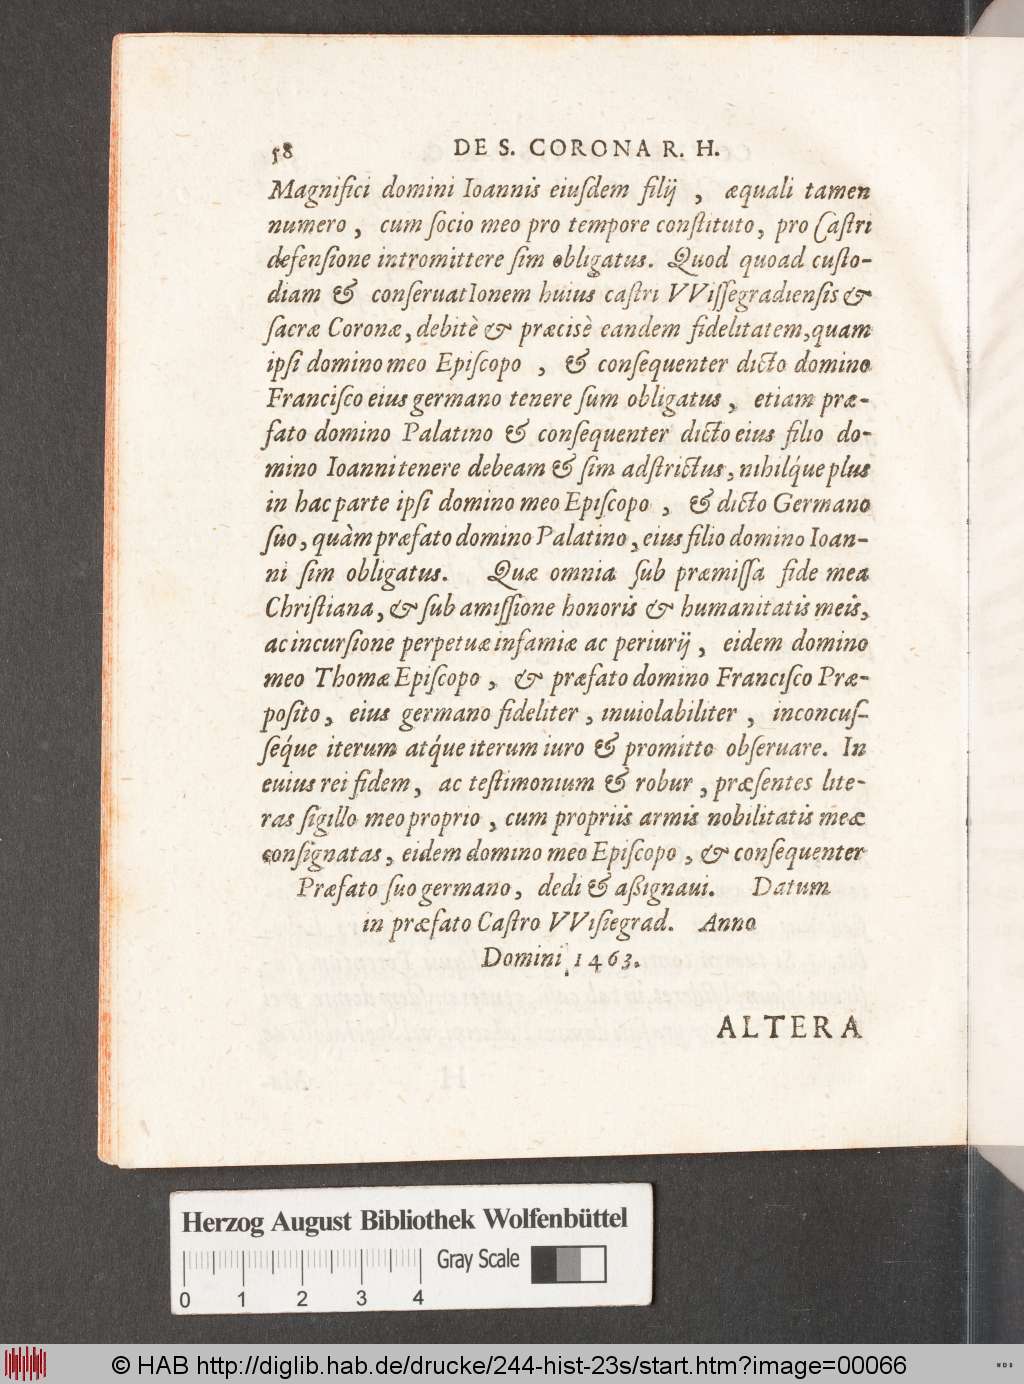 58 DE S. CORONA R. H.
Magnifici domini Ioannis eiuſdem filij , æquali tamen
numero , cum ſocio meo pro tempore conſtituto, pro Caſtri
defenſione intromittere ſim obligatus. Quod quoad cuſto-
diam & conſeruatIonem huius caſtri VViſſegradienſis &
ſacræ Coronæ, debitè & præcisè eandem fidelitatem, quam
ipſi domino meo Epiſcopo , & conſequenter dicto domino
Franciſco eius germano tenere ſum obligatus, etiam præ-
fato domino Palatino & conſequenter dicto eius filio do-
mino Ioanni tenere debeam & ſim adſtrictus, nihilq́ue plus
in hac parte ipſi domino meo Epiſcopo , & dicto Germano
ſuo, quàm præfato domino Palatino, eius filio domino Ioan-
ni ſim obligatus. Quæ omnia ſub præmiſſa fide mea
Chriſtiana, & ſub amiſſione honoris & humanitatis meis,
ac incurſione perpetuæ infamiæ ac periurij , eidem domino
meo Thomæ Epiſcopo , & præfato domino Franciſco Præ-
poſito, eius germano fideliter , inuiolabiliter , inconcuſ-
ſeq́ue iterum atq́ue iterum iuro & promitto obſeruare. In
euius rei fidem, ac teſtimonium & robur , præſentes lite-
ras ſigillo meo proprio , cum propriis armis nobilitatis meæ
conſignatas, eidem domino meo Epiſcopo , & conſequenter
Præfato ſuo germano, dedi & aßignaui. Datum
in præfato Caſtro VViſiegrad. Anno
Domini 1463.
ALTERA
Herzog August Bibliothek Wolfenbüttel
Gray Scale
0 1 2 3 4
© HAB http://diglib.hab.de/drucke/244-hist-23s/start.htm?image=00066